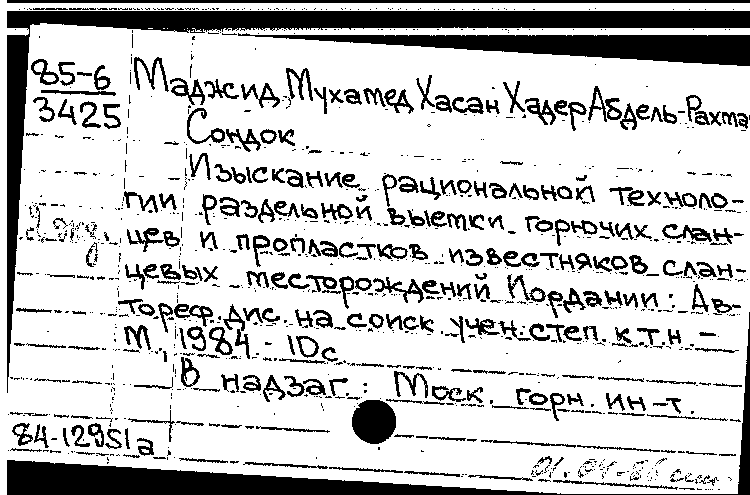 85-6
3425
Маджид, Мухамед Хасан Хадер Абдель-Рахма
Сондок
Изыскание рациональной техноло-
гии раздельной выемки горючих слан-
цев и пропластков известняков слан-
цевых месторождений Иордании: Ав-
тореф. дис. на соиск. учен. степ. к.т.н. -
М., 1984 - 10с.
В надзаг.: Моск. горн. ин-т.
2 экз.
84-12951а